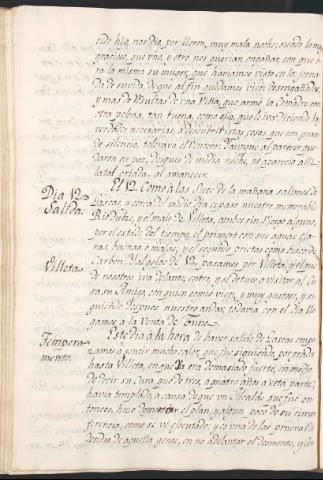 cido hijo, nos dio, por lloron, muy mala noche, siendo lo mas
gracioso, que uno, y otro nos querian engañar, con que e-
ra la misma su muger, que haviamos visto en la jorna-
da de subida, de que al fin quedamos vien desengañados,
y mas de resultas de una riña, que armó la Comadre con
otra pelona, tan buena, como ella, que le iva diciendo las
verdades necesarias, a descubrir estas cosas, que con gran-
de silencio, tolerava el Ventero: Y aunque al parecer que-
daron en paz, despues de media noche, no parecio alli
la tal criada, al amanecer.
Dia 12
Salida
El 12. Como á las siete de la mañana salimos de
Guascas, y cerca del medio dia se paso nuestro memorable
Rio dulce, y el malo de Villeta, ambos sin riesgo alguno,
por el estado del tiempo, el primero con sus aguas cla-
ras, buenas
como si fuera de
Villeta
Carbon. Al golpe de 12. pasamos por Villeta, y el uno
de nosotros iva delante, entró, y se detuvo á visitar al Cu-
ra su Amigo, con quien comió vien, y muy gustoso, y si-
guiendo despues nuestro andar, todavia con el dia lle-
gamos á la Venta de
Tempera
mento
Este dia á la hora de haver salido de Guascas empe-
zamos á sentir mucho calor, que fue siguiendo, por grados
hasta Villeta, en que ya era demasiado fuerte, en medio
de decir su Cura que de tres, a quatro años a esta parte,
havia templado, a causa de que un Alcalde que fue en-
tonces hizo demontar el plan, y algun poco de su circun-
ferencia, como se vé executado; y es una de las pruevas
desidia de aquella gente, en no adelantar el desmonte, y